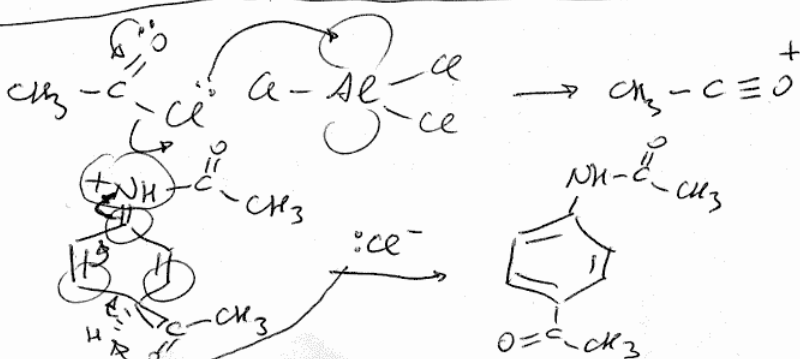 O
CH3 - C Cl Cl - Al Cl Cl → CH3 - C ≡ O +
+ NH - C O CH3
:Cl⁻
NH - C O CH3
H C - CH3
O = C - CH3